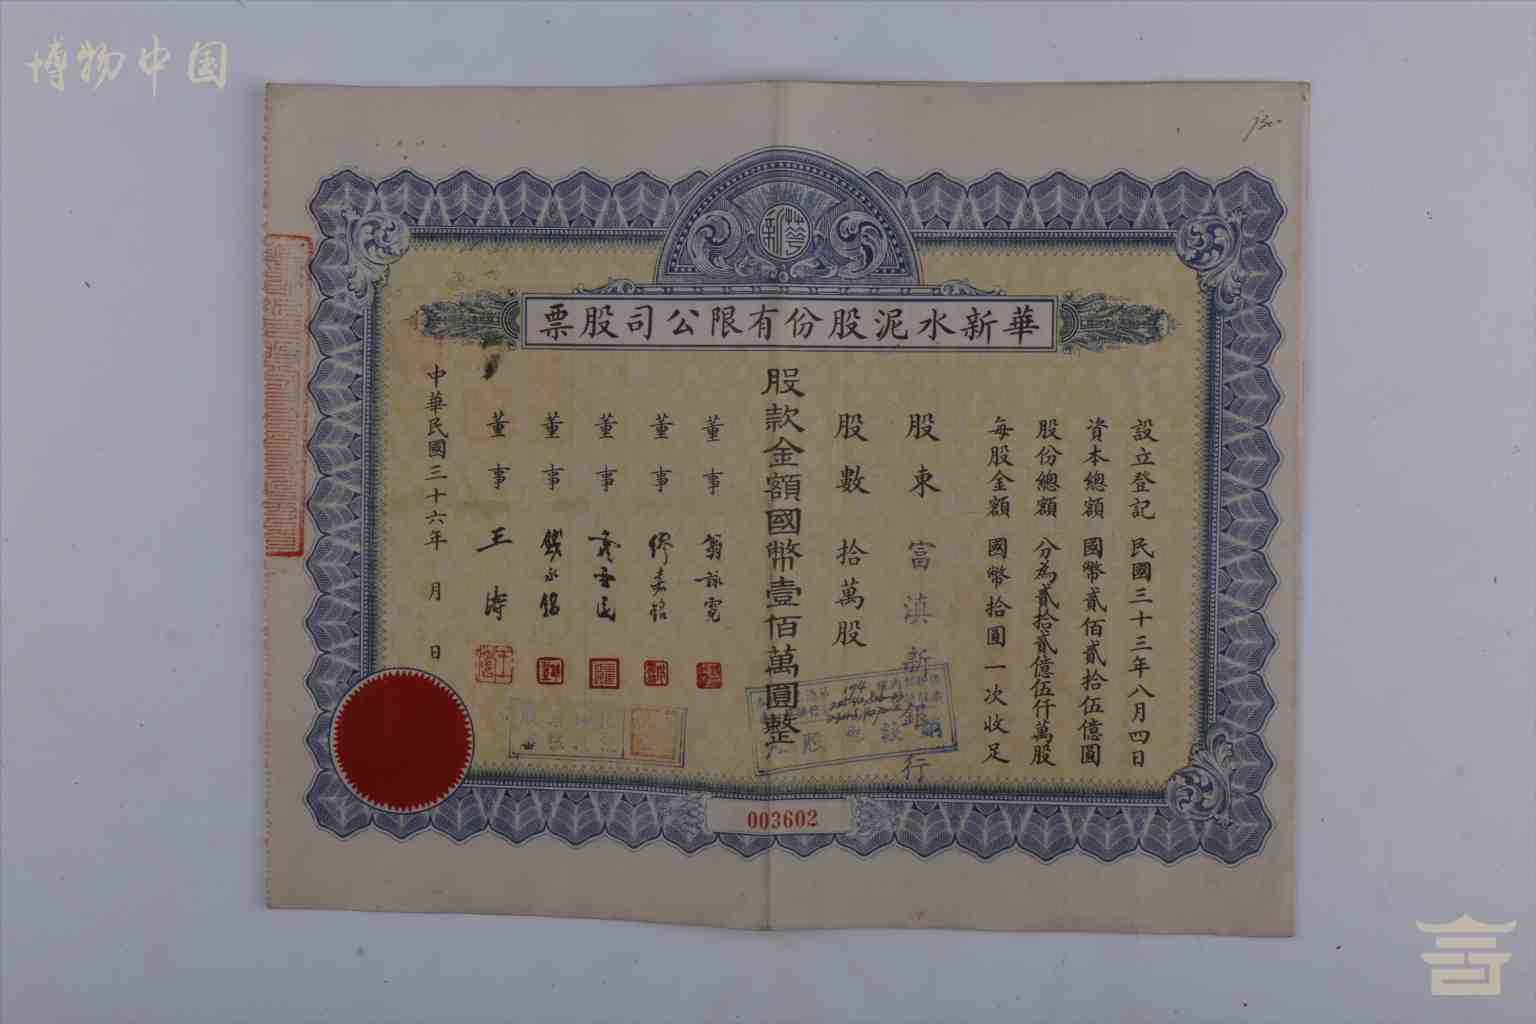 博物中国
130
華新
華新水泥股份有限公司股票
設立登記 民國三十三年八月四日
資本總額 國幣貳佰貳拾伍億圓
股份總額 分為貳拾貳億伍仟萬股
每股金額 國幣拾圓一次收足
股東 富滇新銀行
股數 拾萬股
股款金額國幣壹佰萬圓整
董事 翁詠霓
董事 繆嘉銘
董事
董事 錢永銘
董事 王濤
中華民國三十六年 月 日
003602